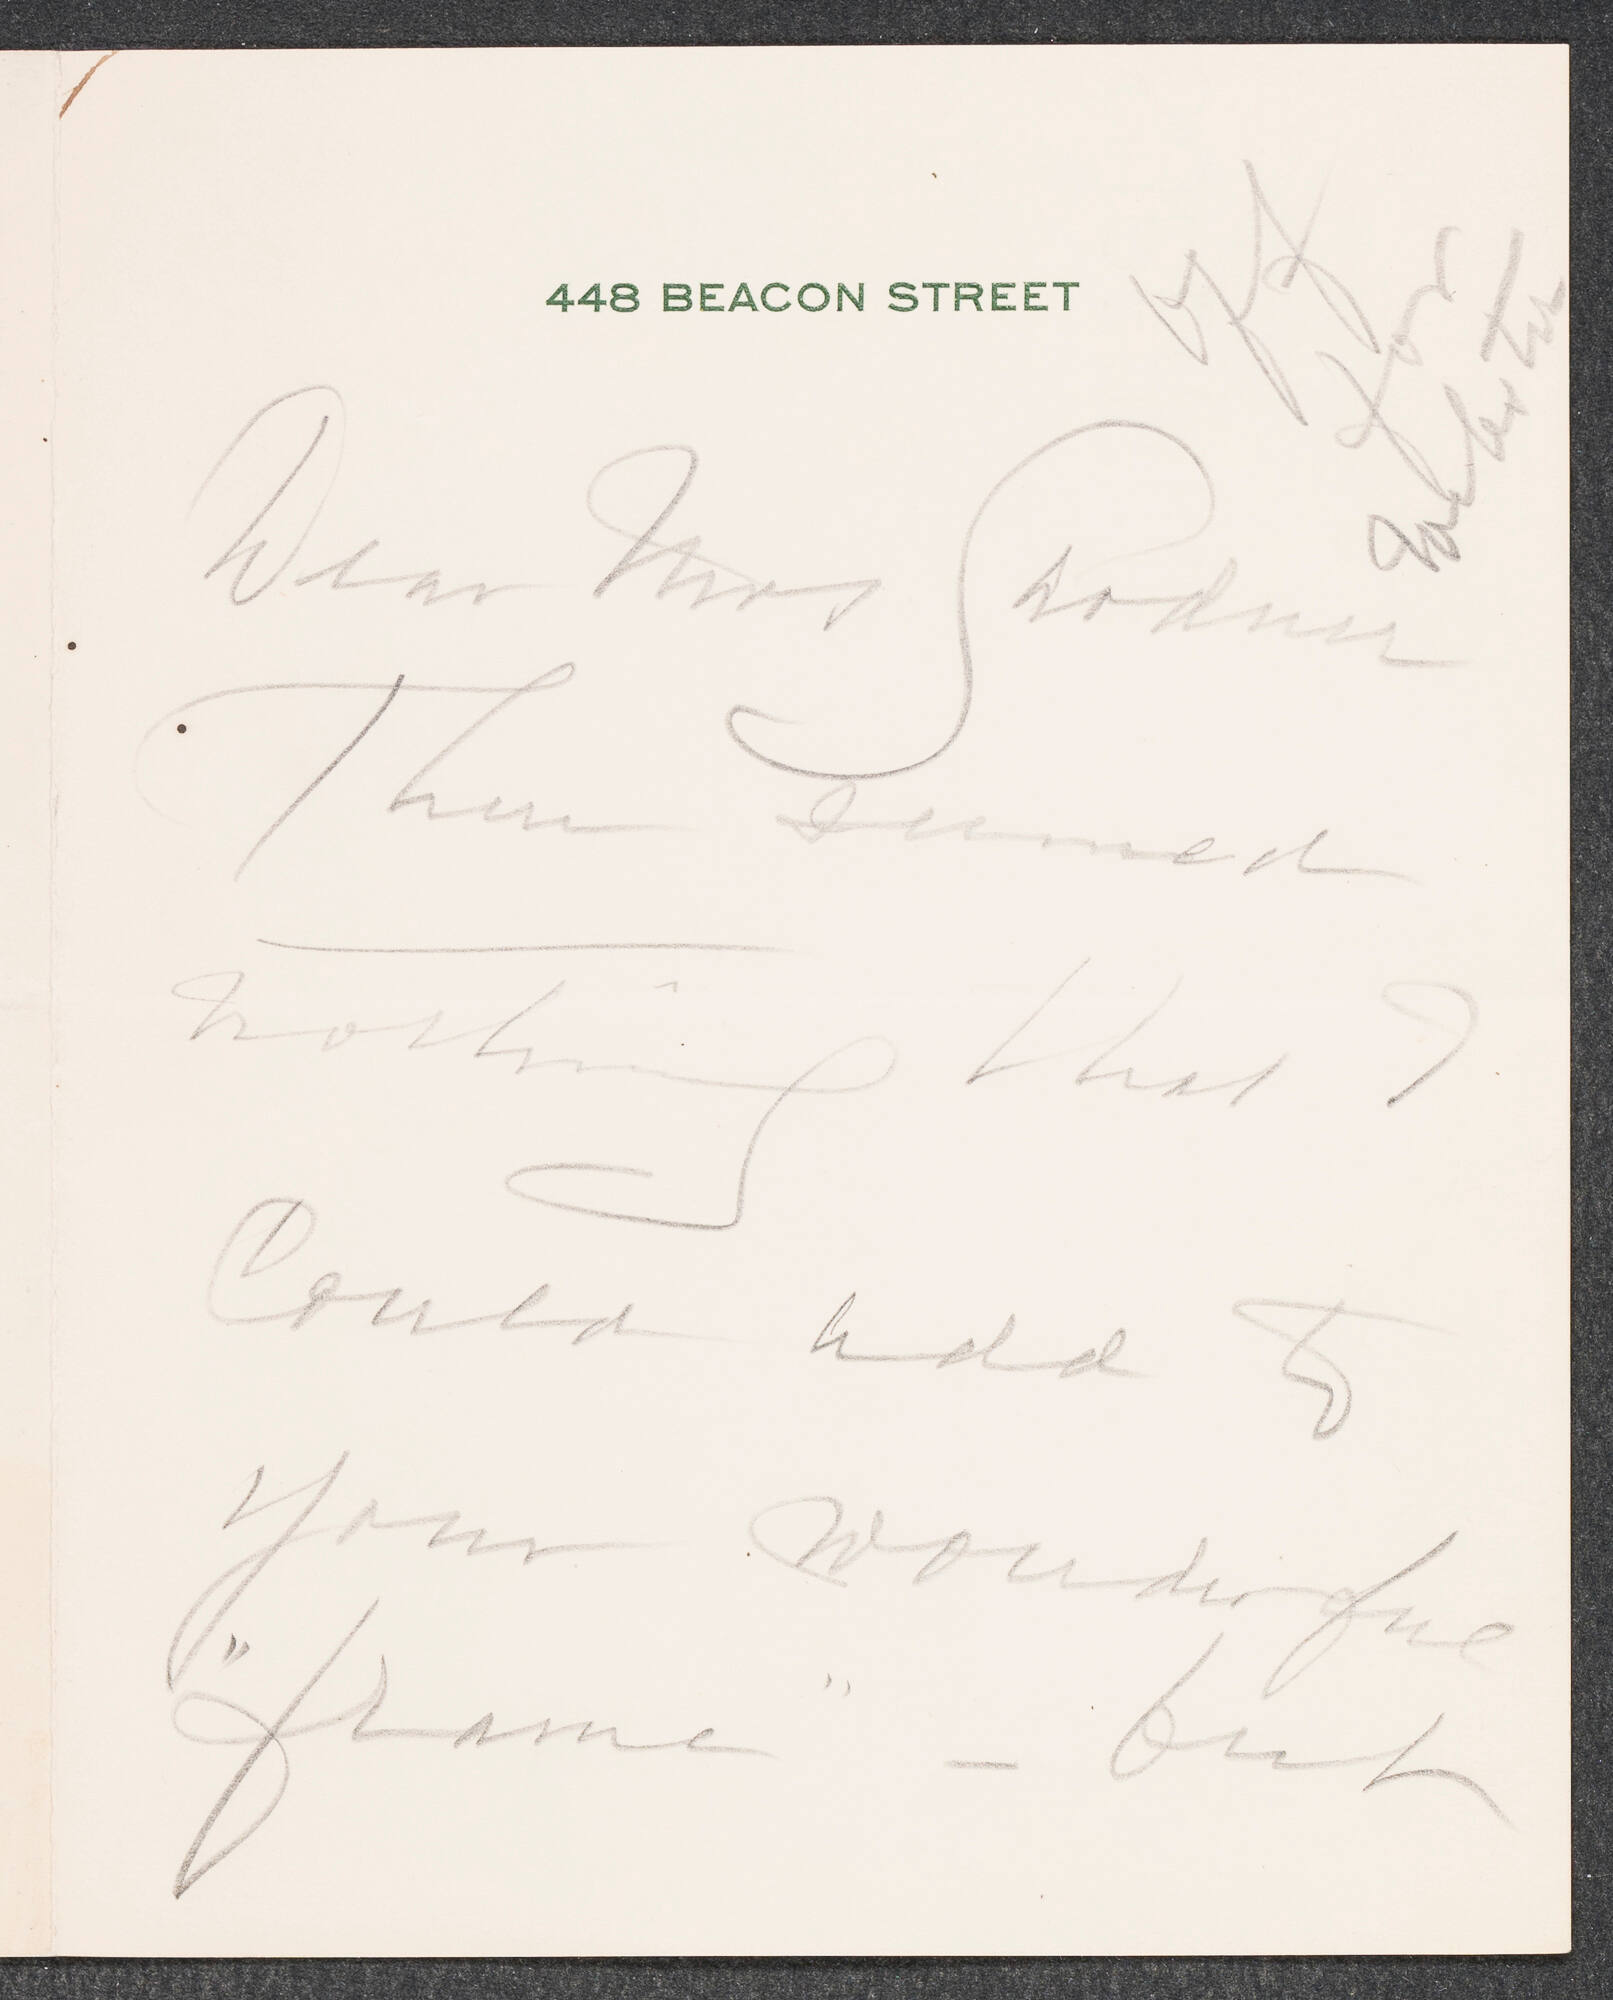 448 BEACON STREET
Dear Mrs Gardner
There seemed
nothing that I
Could add to
your wonderful
"frame" — but